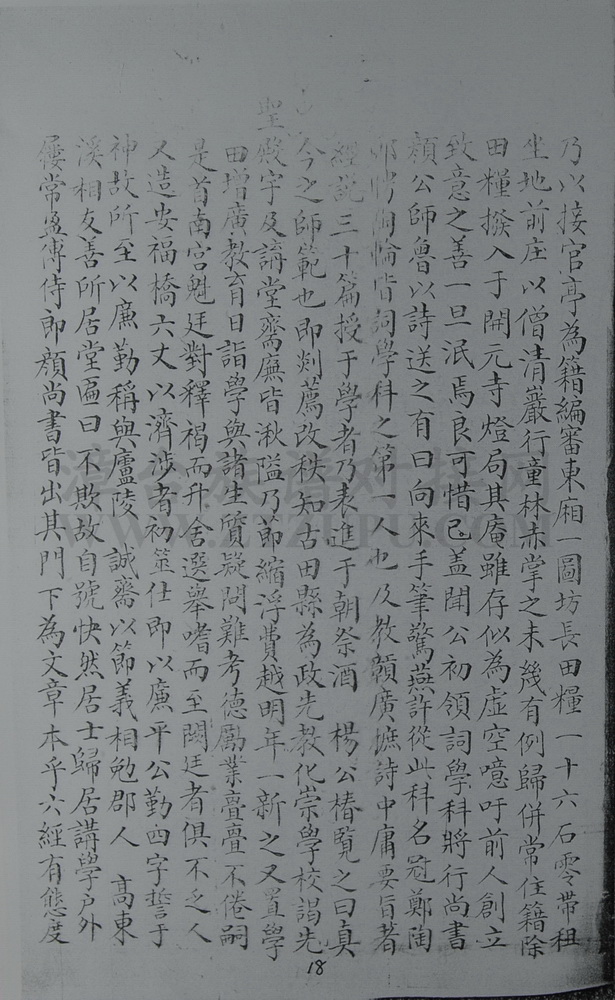 乃以接官亭為籍編審東廂一圖坊長田糧一十六石零帶租
坐地前庄以僧清巖行童林赤掌之未幾有例歸併常住籍除
田糧撥入于開元寺燈局其庵雖存似為虛空噫吁前人創立
致意之善一旦泯焉良可惜已蓋聞公初領詞學科將行尚書
顏公師魯以詩送之有曰向來手筆驚燕許從此科名冠鄭陶
皆詞學科之第一人也及教額廣摭詩中庸要旨著
經說三十篇授于學者乃表進于朝祭酒 楊公椿覽之曰真
今之師範也即剡薦改秩知古田縣為政先教化崇學校謁先
聖殿宇及講堂齋廡皆湫隘乃節縮浮費越明年一新之又置學
田增廣教育日詣學與諸生質疑問難考德勵業亹亹不倦嗣
是首南宮魁廷對釋褐而升舍選舉嗜而至闕廷者俱不乏人
又造安福橋六丈以濟涉者初筮仕即以廉平公勤四字誓于
神故所至以廉勤稱與廬陵 誠齋以節義相勉郡人 高東
溪相友善所居堂匾曰不欺故自號快然居士歸居講學戶外
屨常盈傅侍郎顏尚書皆出其門下為文章本乎六經有態度
18